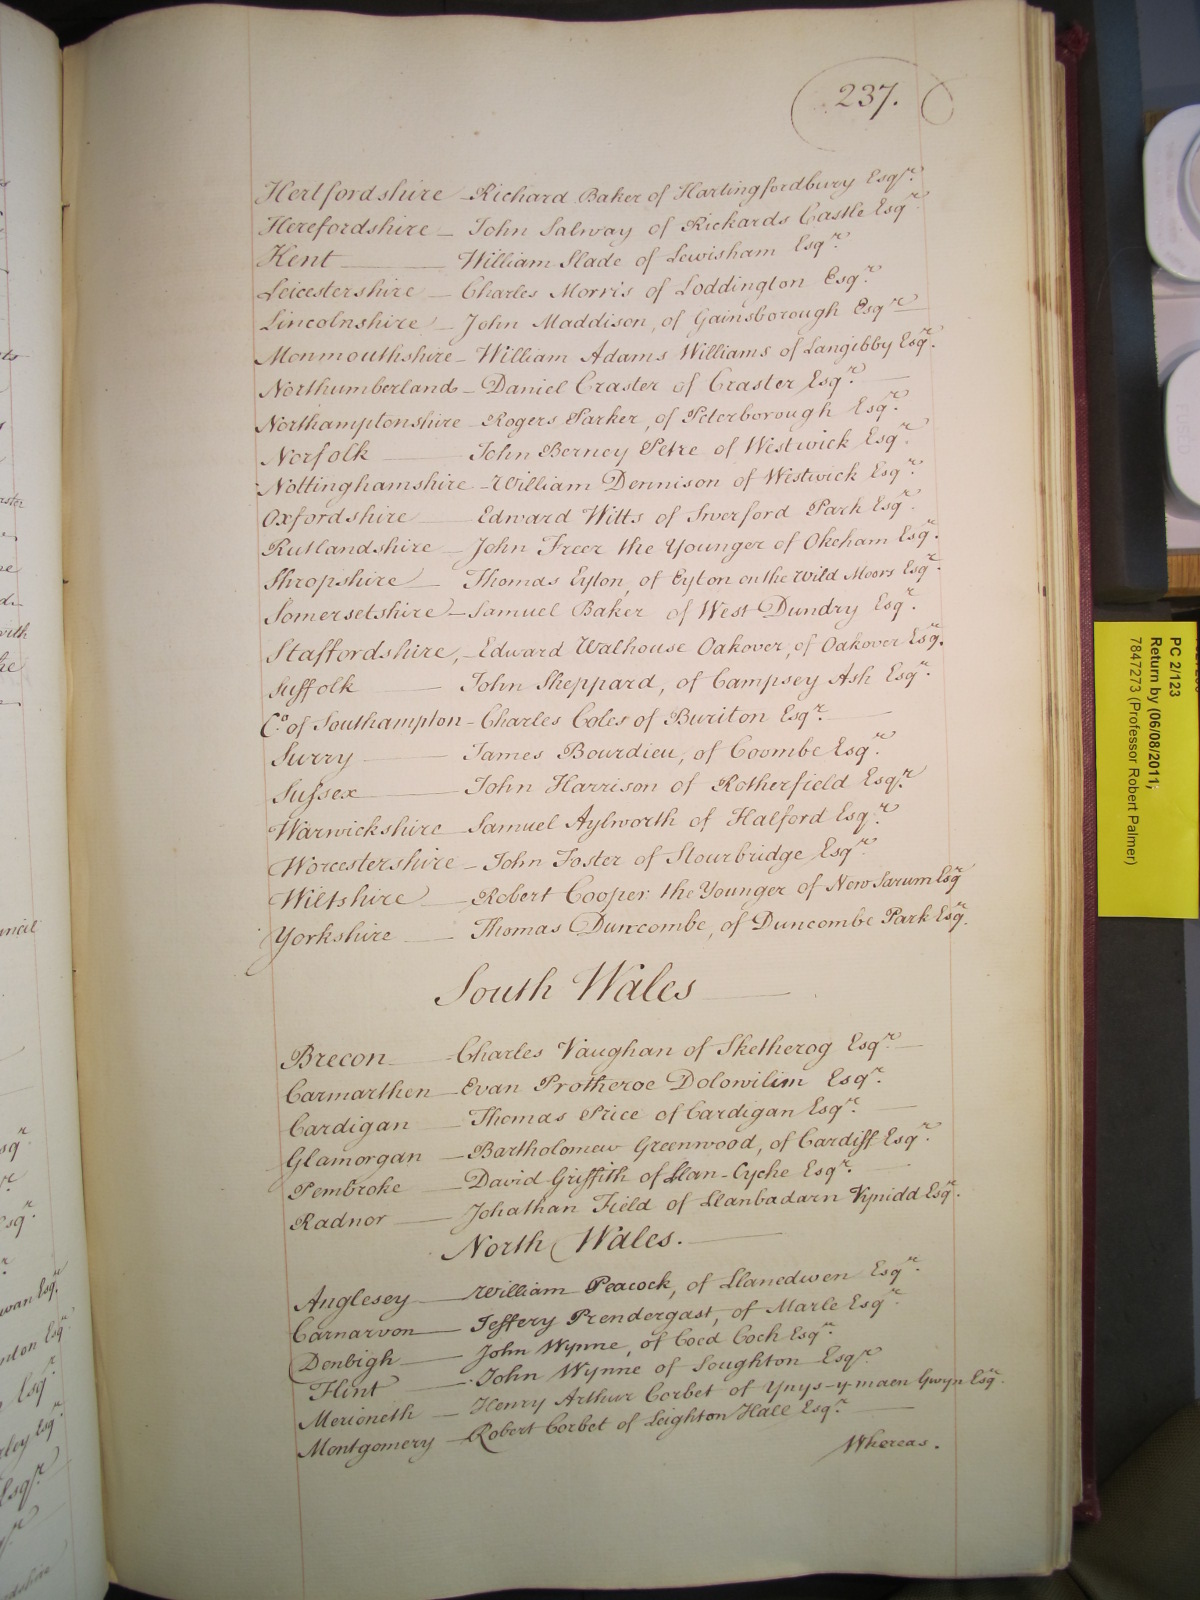 237.
Hertfordshire - Richard Baker of Hartingfordbury Esqr.
Herefordshire - John Salway of Rickards Castle Esqr.
Kent - William Slade of Lewisham Esqr.
Leicestershire - Charles Morris of Loddington Esqr.
Lincolnshire - John Maddison, of Gainsborough Esqr
Monmouthshire - William Adams Williams of Langibby Esqr.
Northumberland - Daniel Craster of Craster Esqr.
Northamptonshire - Rogers Parker, of Peterborough Esqr.
Norfolk - John Berney Petre of Westwick Esqr.
Nottinghamshire - William Dennison of Westwick Esqr.
Oxfordshire - Edward Witts of Swerford Park Esqr.
Rutlandshire - John Freer the Younger of Okeham Esqr.
Shropshire - Thomas Eyton, of Eyton on the Wild Moors Esqr.
Somersetshire - Samuel Baker of West Dundry Esqr.
Staffordshire, - Edward Walhouse Oakover, of Oakover Esqr.
Suffolk - John Sheppard, of Campsey Ash Esqr.
Co. of Southampton - Charles Coles of Buriton Esqr.
Surry - James Bourdieu, of Coombe Esqr.
Sussex - John Harrison of Rotherfield Esqr.
Warwickshire - Samuel Aylworth of Halford Esqr.
Worcestershire - John Foster of Stourbridge Esqr.
Wiltshire - Robert Cooper the Younger of New Sarum Esqr
Yorkshire - Thomas Duncombe, of Duncombe Park Esqr.
South Wales
Brecon - Charles Vaughan of Sketherog Esqr.
Carmarthen - Evan Protheroe Dolowilim Esqr.
Cardigan - Thomas Price of Cardigan Esqr.
Glamorgan - Bartholomew Greenwood, of Cardiff Esqr.
Pembroke - David Griffith of Llan-Cyche Esqr.
Radnor - Johathan Field of Llanbadarn Vynidd Esqr.
North Wales.
Anglesey - William Peacock, of Llanedwen Esqr.
Carnarvon - Jeffery Prendergast, of Marle Esqr.
Denbigh - John Wynne, of Coed Coch Esqr.
Flint - John Wynne of Soughton Esqr.
Merioneth - Henry Arthur Corbet of Ynys-y-maen Gwyn Esqr.
Montgomery - Robert Corbet of Leighton Hall Esqr.
Whereas.
PC 2/123
Return by (06/08/2011;
7847273 (Professor Robert Palmer)